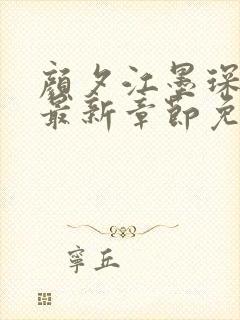 顔夕江墨琛
最新章節免
寧丘